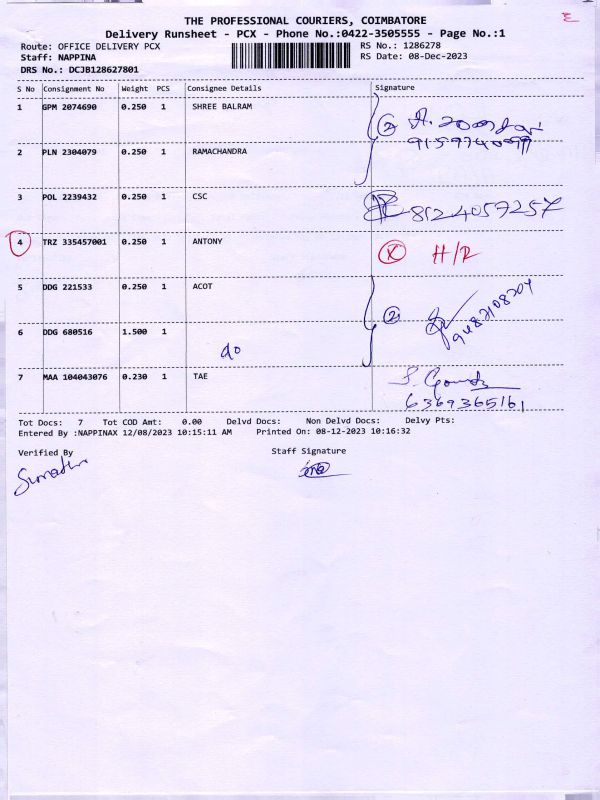 THE PROFESSIONAL COURIERS, COIMBATORE
Delivery Runsheet - PCX - Phone No.:0422-3505555 - Page No.:1
Route: OFFICE DELIVERY PCX RS No.: 1286278
Staff: NAPPINA RS Date: 08-Dec-2023
DRS No.: DCJB128627801
S No Consignment No Weight PCS Consignee Details Signature
1 GPM 2074690 0.250 1 SHREE BALRAM
2
2 PLN 2304079 0.250 1 RAMACHANDRA
3 POL 2239432 0.250 1 CSC 8124057257
4 TRZ 335457001 0.250 1 ANTONY X H/R
5 DDG 221533 0.250 1 ACOT
2 9482108204
6 DDG 680516 1.500 1 do
7 MAA 104043076 0.230 1 TAE
6369365161
Tot Docs: 7 Tot COD Amt: 0.00 Delvd Docs: Non Delvd Docs: Delvy Pts:
Entered By :NAPPINAX 12/08/2023 10:15:11 AM Printed On: 08-12-2023 10:16:32
Verified By Staff Signature